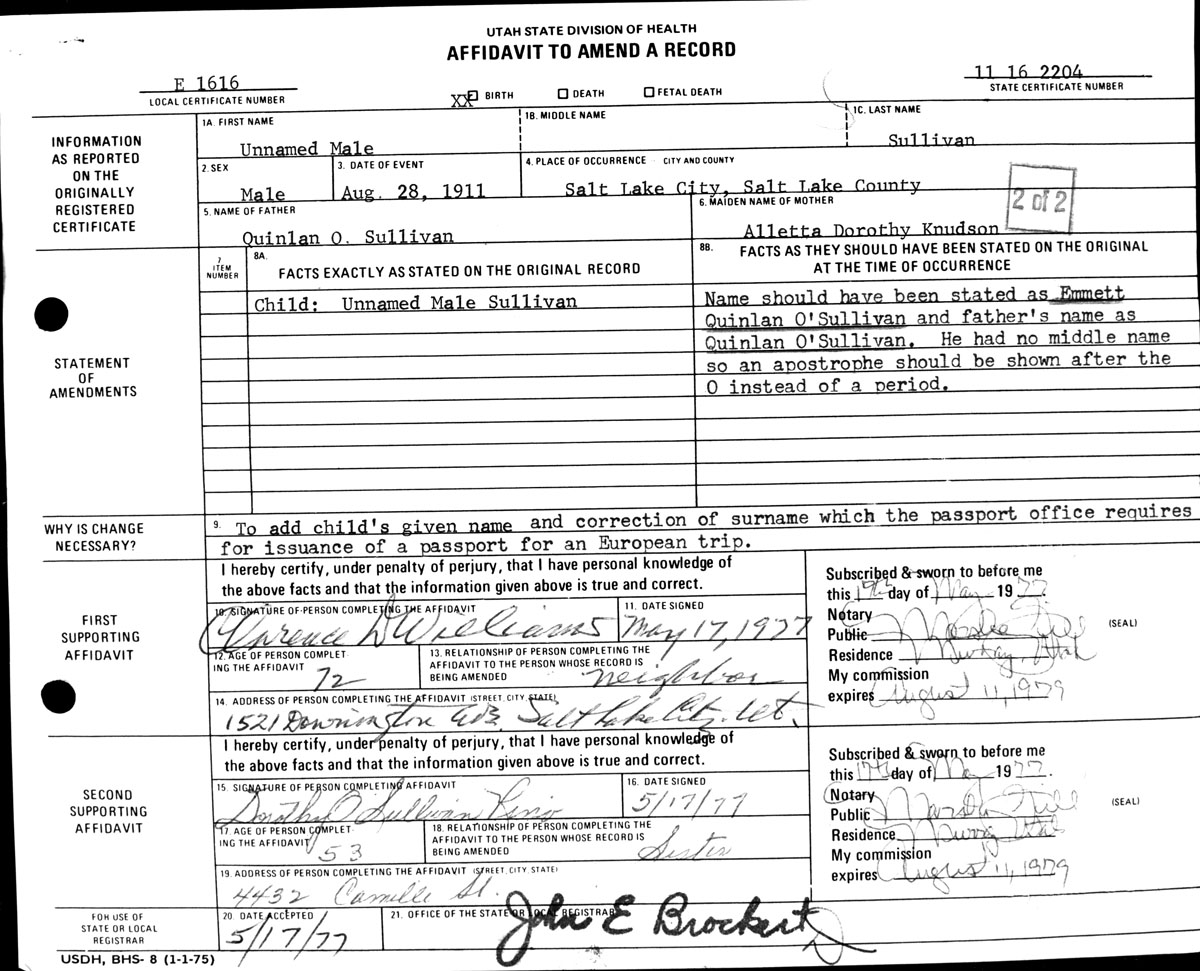 UTAH STATE DIVISION OF HEALTH
AFFIDAVIT TO AMEND A RECORD
E 1616
LOCAL CERTIFICATE NUMBER
XX BIRTH DEATH FETAL DEATH
11 16 2204
STATE CERTIFICATE NUMBER
INFORMATION
AS REPORTED
ON THE
ORIGINALLY
REGISTERED
CERTIFICATE
1A. FIRST NAME
Unnamed Male
1B. MIDDLE NAME
1C. LAST NAME
Sullivan
2. SEX
Male
3. DATE OF EVENT
Aug. 28, 1911
4. PLACE OF OCCURRENCE - CITY AND COUNTY
Salt Lake City, Salt Lake County
2 of 2
5. NAME OF FATHER
Quinlan O. Sullivan
6. MAIDEN NAME OF MOTHER
Alletta Dorothy Knudson
STATEMENT
OF
AMENDMENTS
7
ITEM
NUMBER
8A.
FACTS EXACTLY AS STATED ON THE ORIGINAL RECORD
Child: Unnamed Male Sullivan
8B. FACTS AS THEY SHOULD HAVE BEEN STATED ON THE ORIGINAL
AT THE TIME OF OCCURRENCE
Name should have been stated as Emmett
Quinlan O'Sullivan and father's name as
Quinlan O'Sullivan. He had no middle name
so an apostrophe should be shown after the
O instead of a period.
WHY IS CHANGE
NECESSARY?
9. To add child's given name and correction of surname which the passport office requires
for issuance of a passport for an European trip.
FIRST
SUPPORTING
AFFIDAVIT
I hereby certify, under penalty of perjury, that I have personal knowledge of
the above facts and that the information given above is true and correct.
10. SIGNATURE OF PERSON COMPLETING THE AFFIDAVIT
Clarence D Williams
11. DATE SIGNED
May 17, 1977
12. AGE OF PERSON COMPLET-
ING THE AFFIDAVIT
72
13. RELATIONSHIP OF PERSON COMPLETING THE
AFFIDAVIT TO THE PERSON WHOSE RECORD IS
BEING AMENDED
neighbor
14. ADDRESS OF PERSON COMPLETING THE AFFIDAVIT (STREET, CITY, STATE)
1521 Downington Salt Lake City, Ut.
Subscribed & sworn to before me
this 17th day of May 1977.
Notary
Public
Residence Murray Utah
My commission
expires August 11, 1979
(SEAL)
SECOND
SUPPORTING
AFFIDAVIT
I hereby certify, under penalty of perjury, that I have personal knowledge of
the above facts and that the information given above is true and correct.
15. SIGNATURE OF PERSON COMPLETING AFFIDAVIT
Dorothy O'Sullivan King
16. DATE SIGNED
5/17/77
17. AGE OF PERSON COMPLET-
ING THE AFFIDAVIT
53
18. RELATIONSHIP OF PERSON COMPLETING THE
AFFIDAVIT TO THE PERSON WHOSE RECORD IS
BEING AMENDED
Sister
19. ADDRESS OF PERSON COMPLETING THE AFFIDAVIT (STREET, CITY, STATE)
4432 Camille St.
Subscribed & sworn to before me
this 17th day of May 1977.
Notary
Public
Residence Murray Utah
My commission
expires August 11, 1979
(SEAL)
FOR USE OF
STATE OR LOCAL
REGISTRAR
20. DATE ACCEPTED
5/17/77
21. OFFICE OF THE STATE OR LOCAL REGISTRAR
John E Brockert
USDH, BHS- 8 (1-1-75)